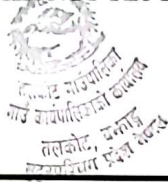 तलकोट गाउँपालिका
गाउँ कार्यपालिकाको कार्यालय
तलकोट, बझाङ
सुदूरपश्चिम प्रदेश नेपाल